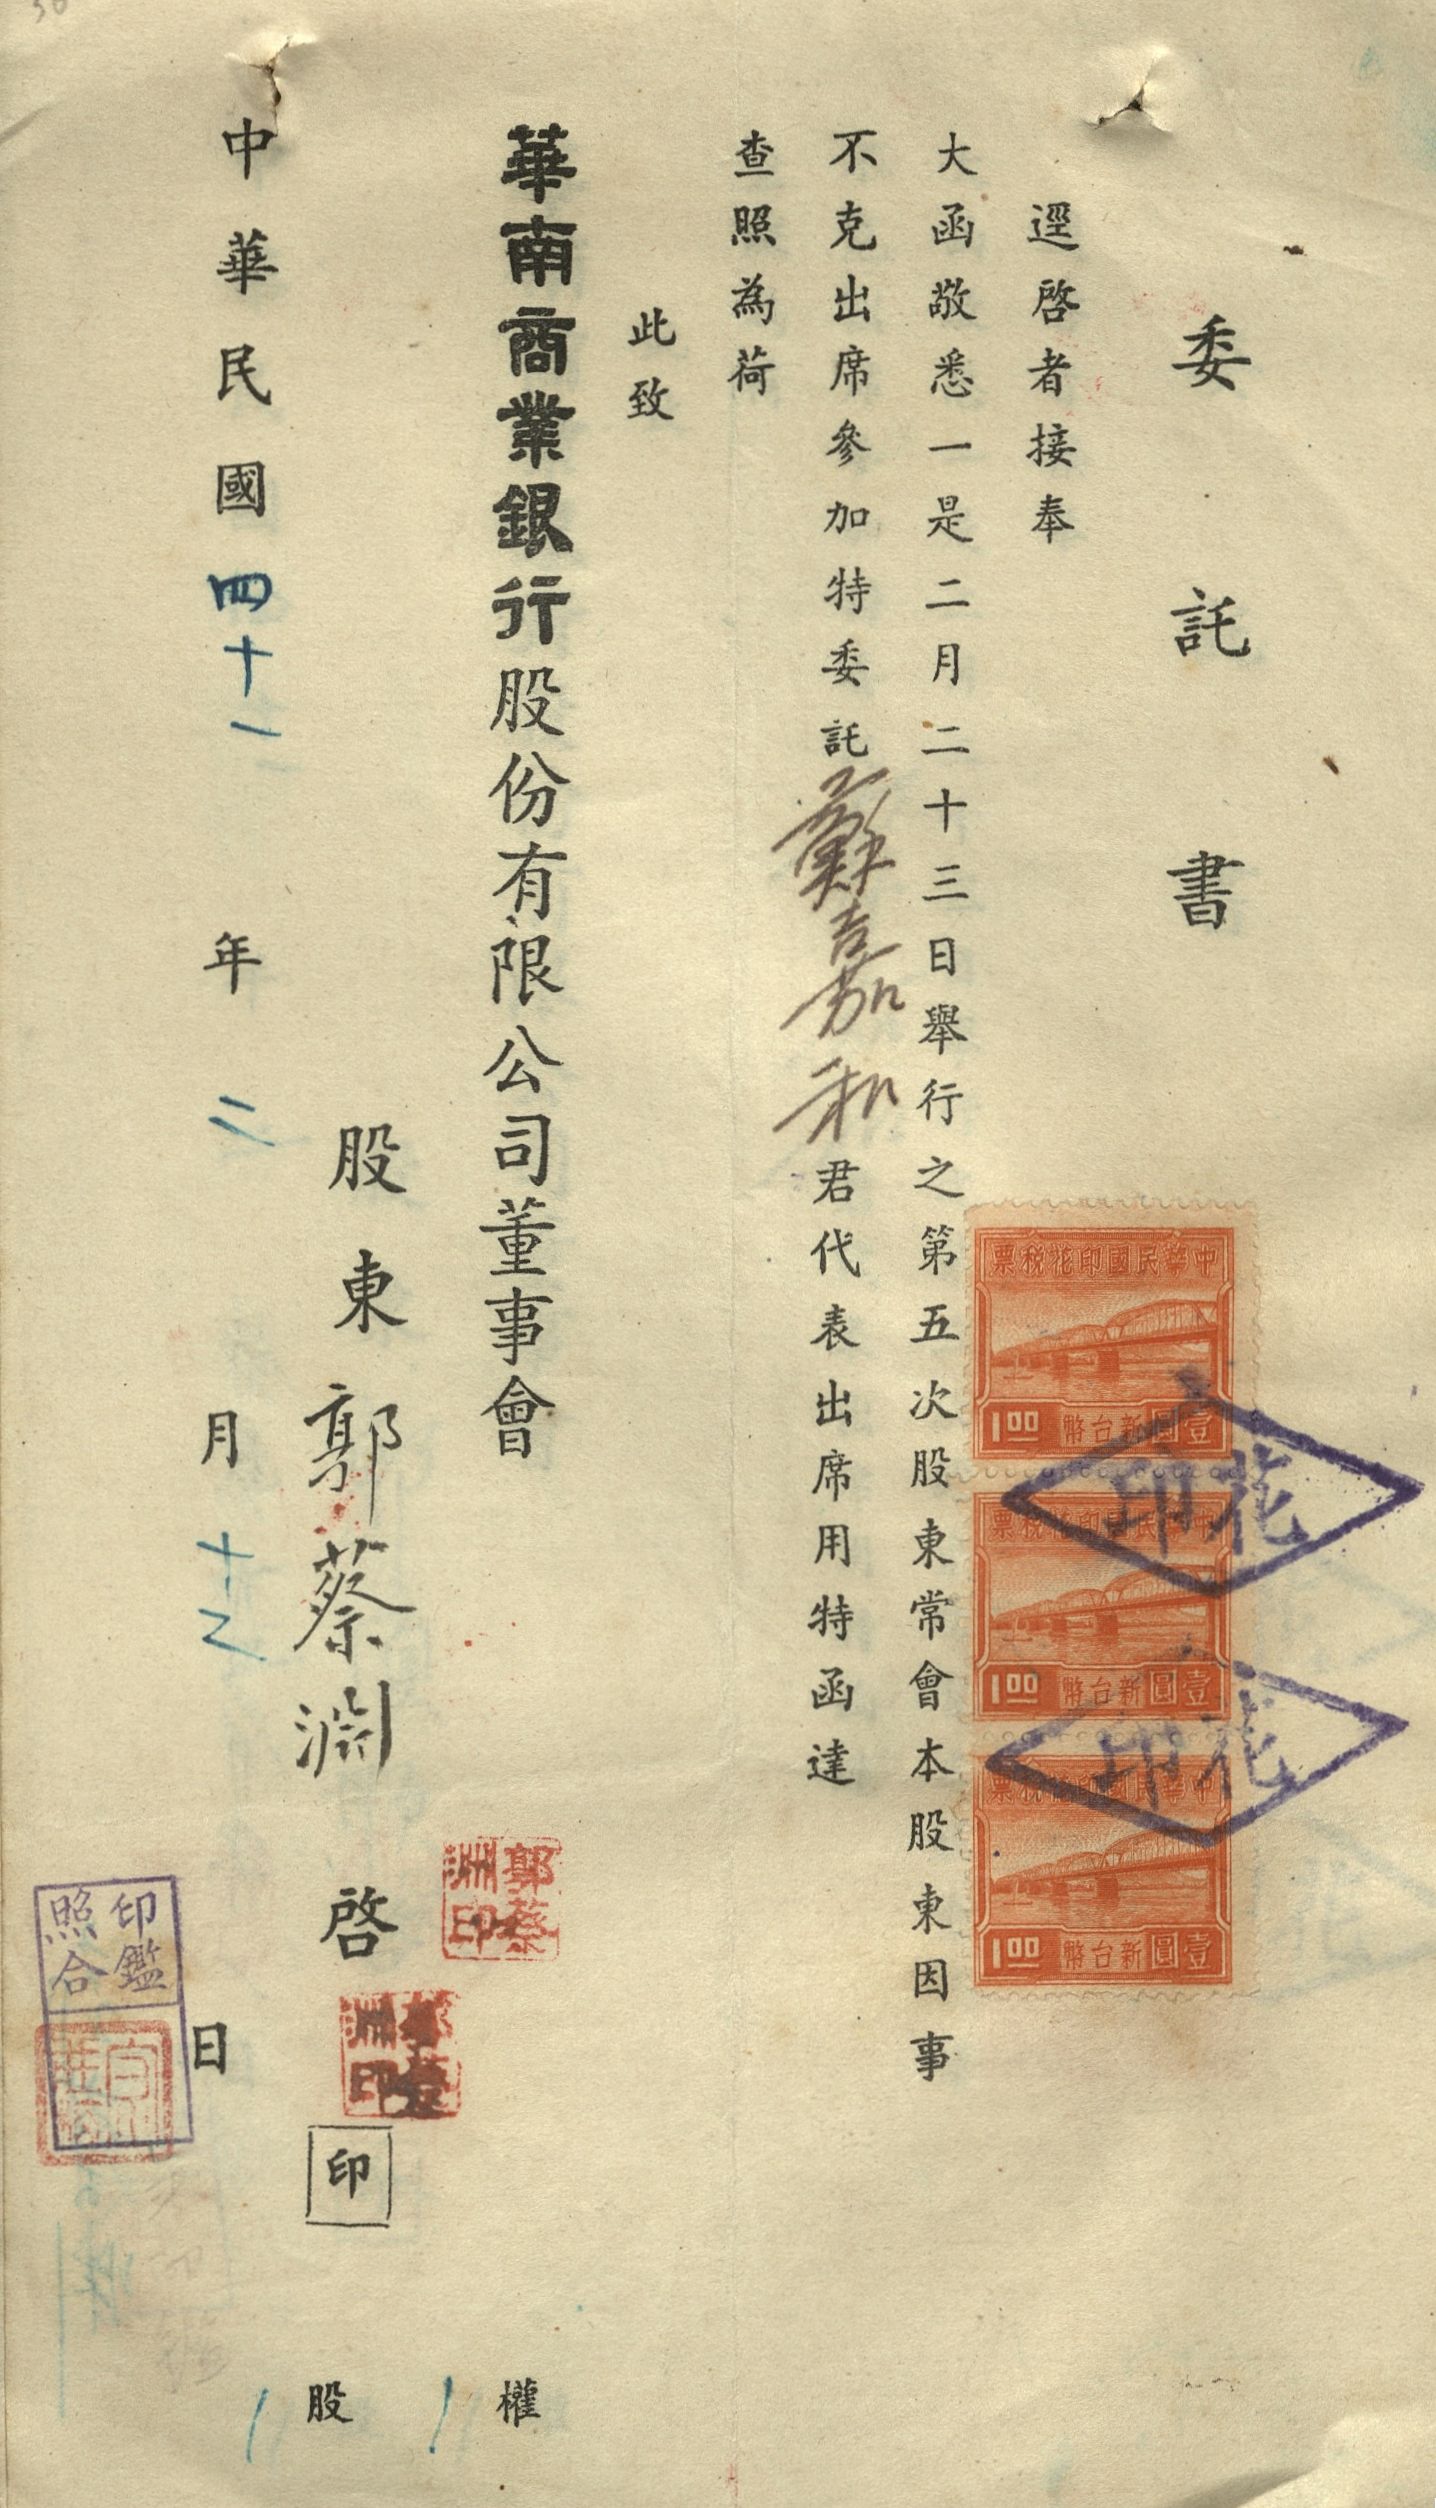 委託書
逕啓者接奉
大函敬悉一是二月二十三日舉行之第五次股東常會本股東因事
不克出席參加特委託蘇嘉和君代表出席用特函達
查照為荷
此致
華南商業銀行股份有限公司董事會
股東郭蔡淵啓印
權
股
中華民國四十一年二月十二日
中華民國印花稅票
壹圓新台幣
1.00
中華民國印花稅票
壹圓新台幣
1.00
中華民國印花稅票
壹圓新台幣
1.00
花印
花印
郭蔡
淵印
郭蔡
淵印
印鑑
照合